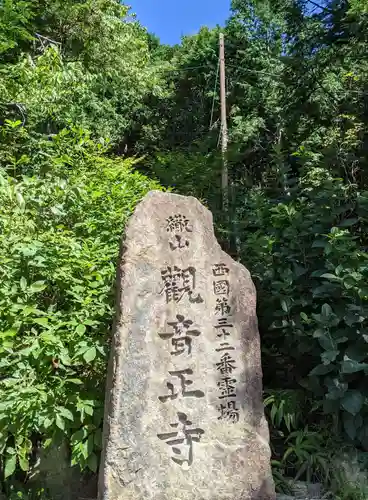 繖山
観音正寺
西國第三十二番霊場